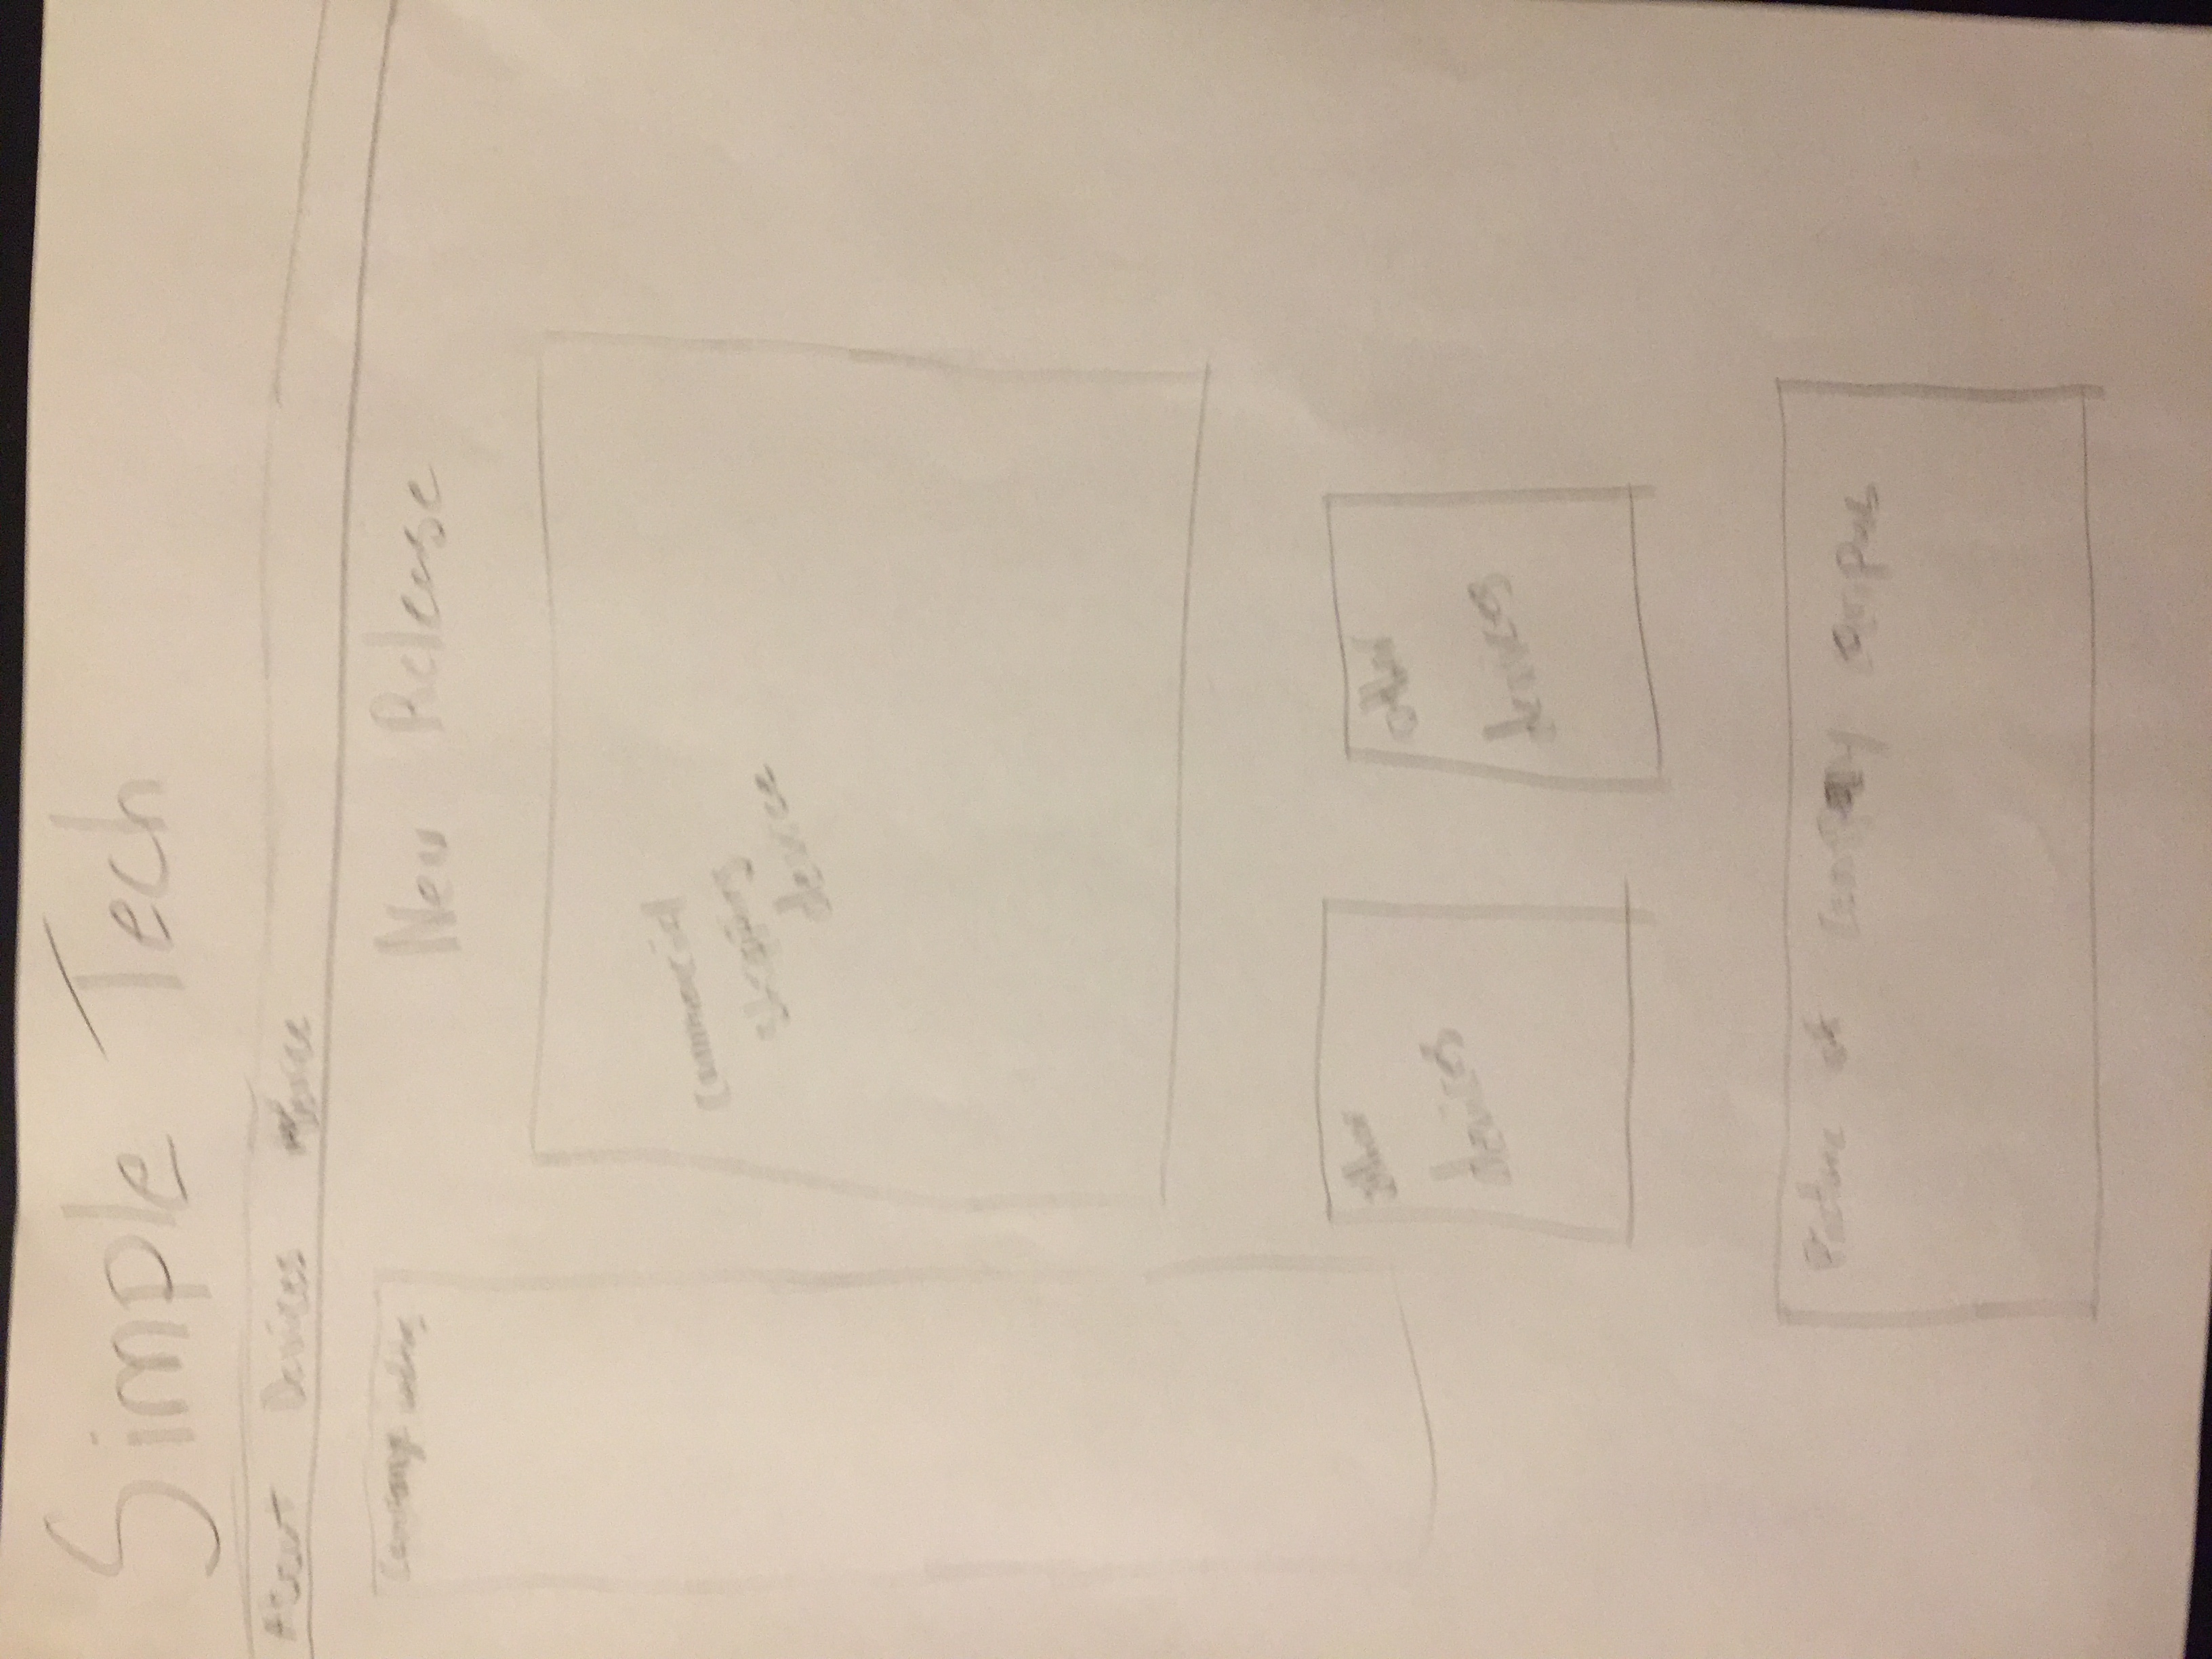 Simple Tech
About Devices
Company
New Release
Commercial
shipping
device
other
devices
other
devices
Picture of company campus